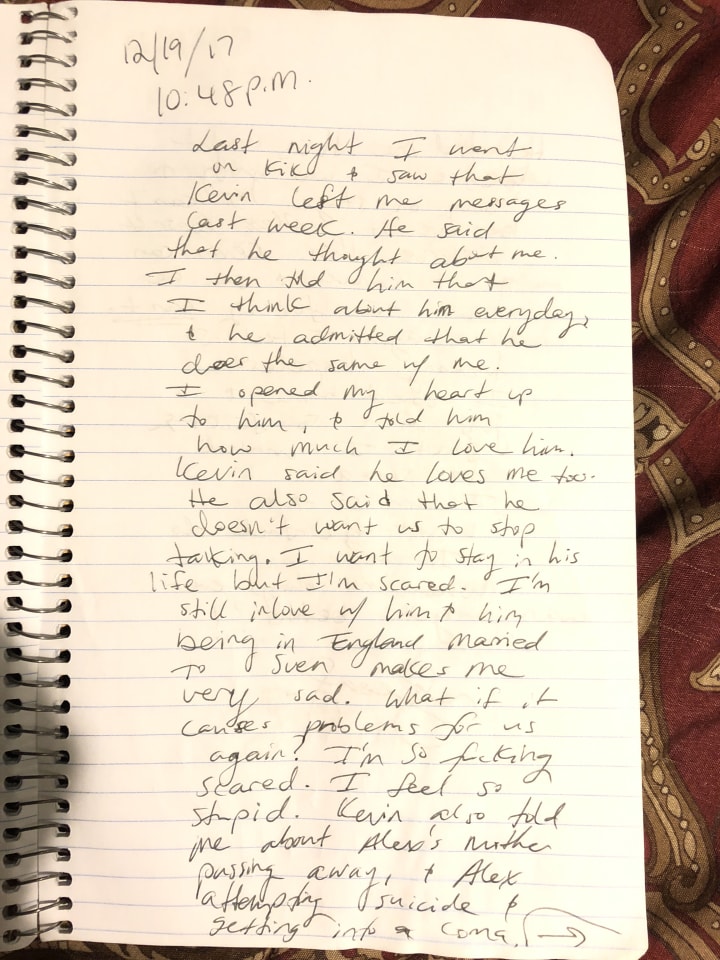 12/19/17
10:48 p.m.
Last night I went
on Kik & saw that
Kevin left me messages
last week. He said
that he thought about me.
I then told him that
I think about him everyday,
& he admitted that he
does the same w/ me.
I opened my heart up
to him, & told him
how much I love him.
Kevin said he loves me too.
He also said that he
doesn't want us to stop
talking. I want to stay in his
life but I'm scared. I'm
still in love w/ him & him
being in England married
to Sven makes me
very sad. What if it
causes problems for us
again? I'm so fucking
scared. I feel so
stupid. Kevin also told
me about Alex's mother
passing away, & Alex
attempting suicide &
getting into a coma. →